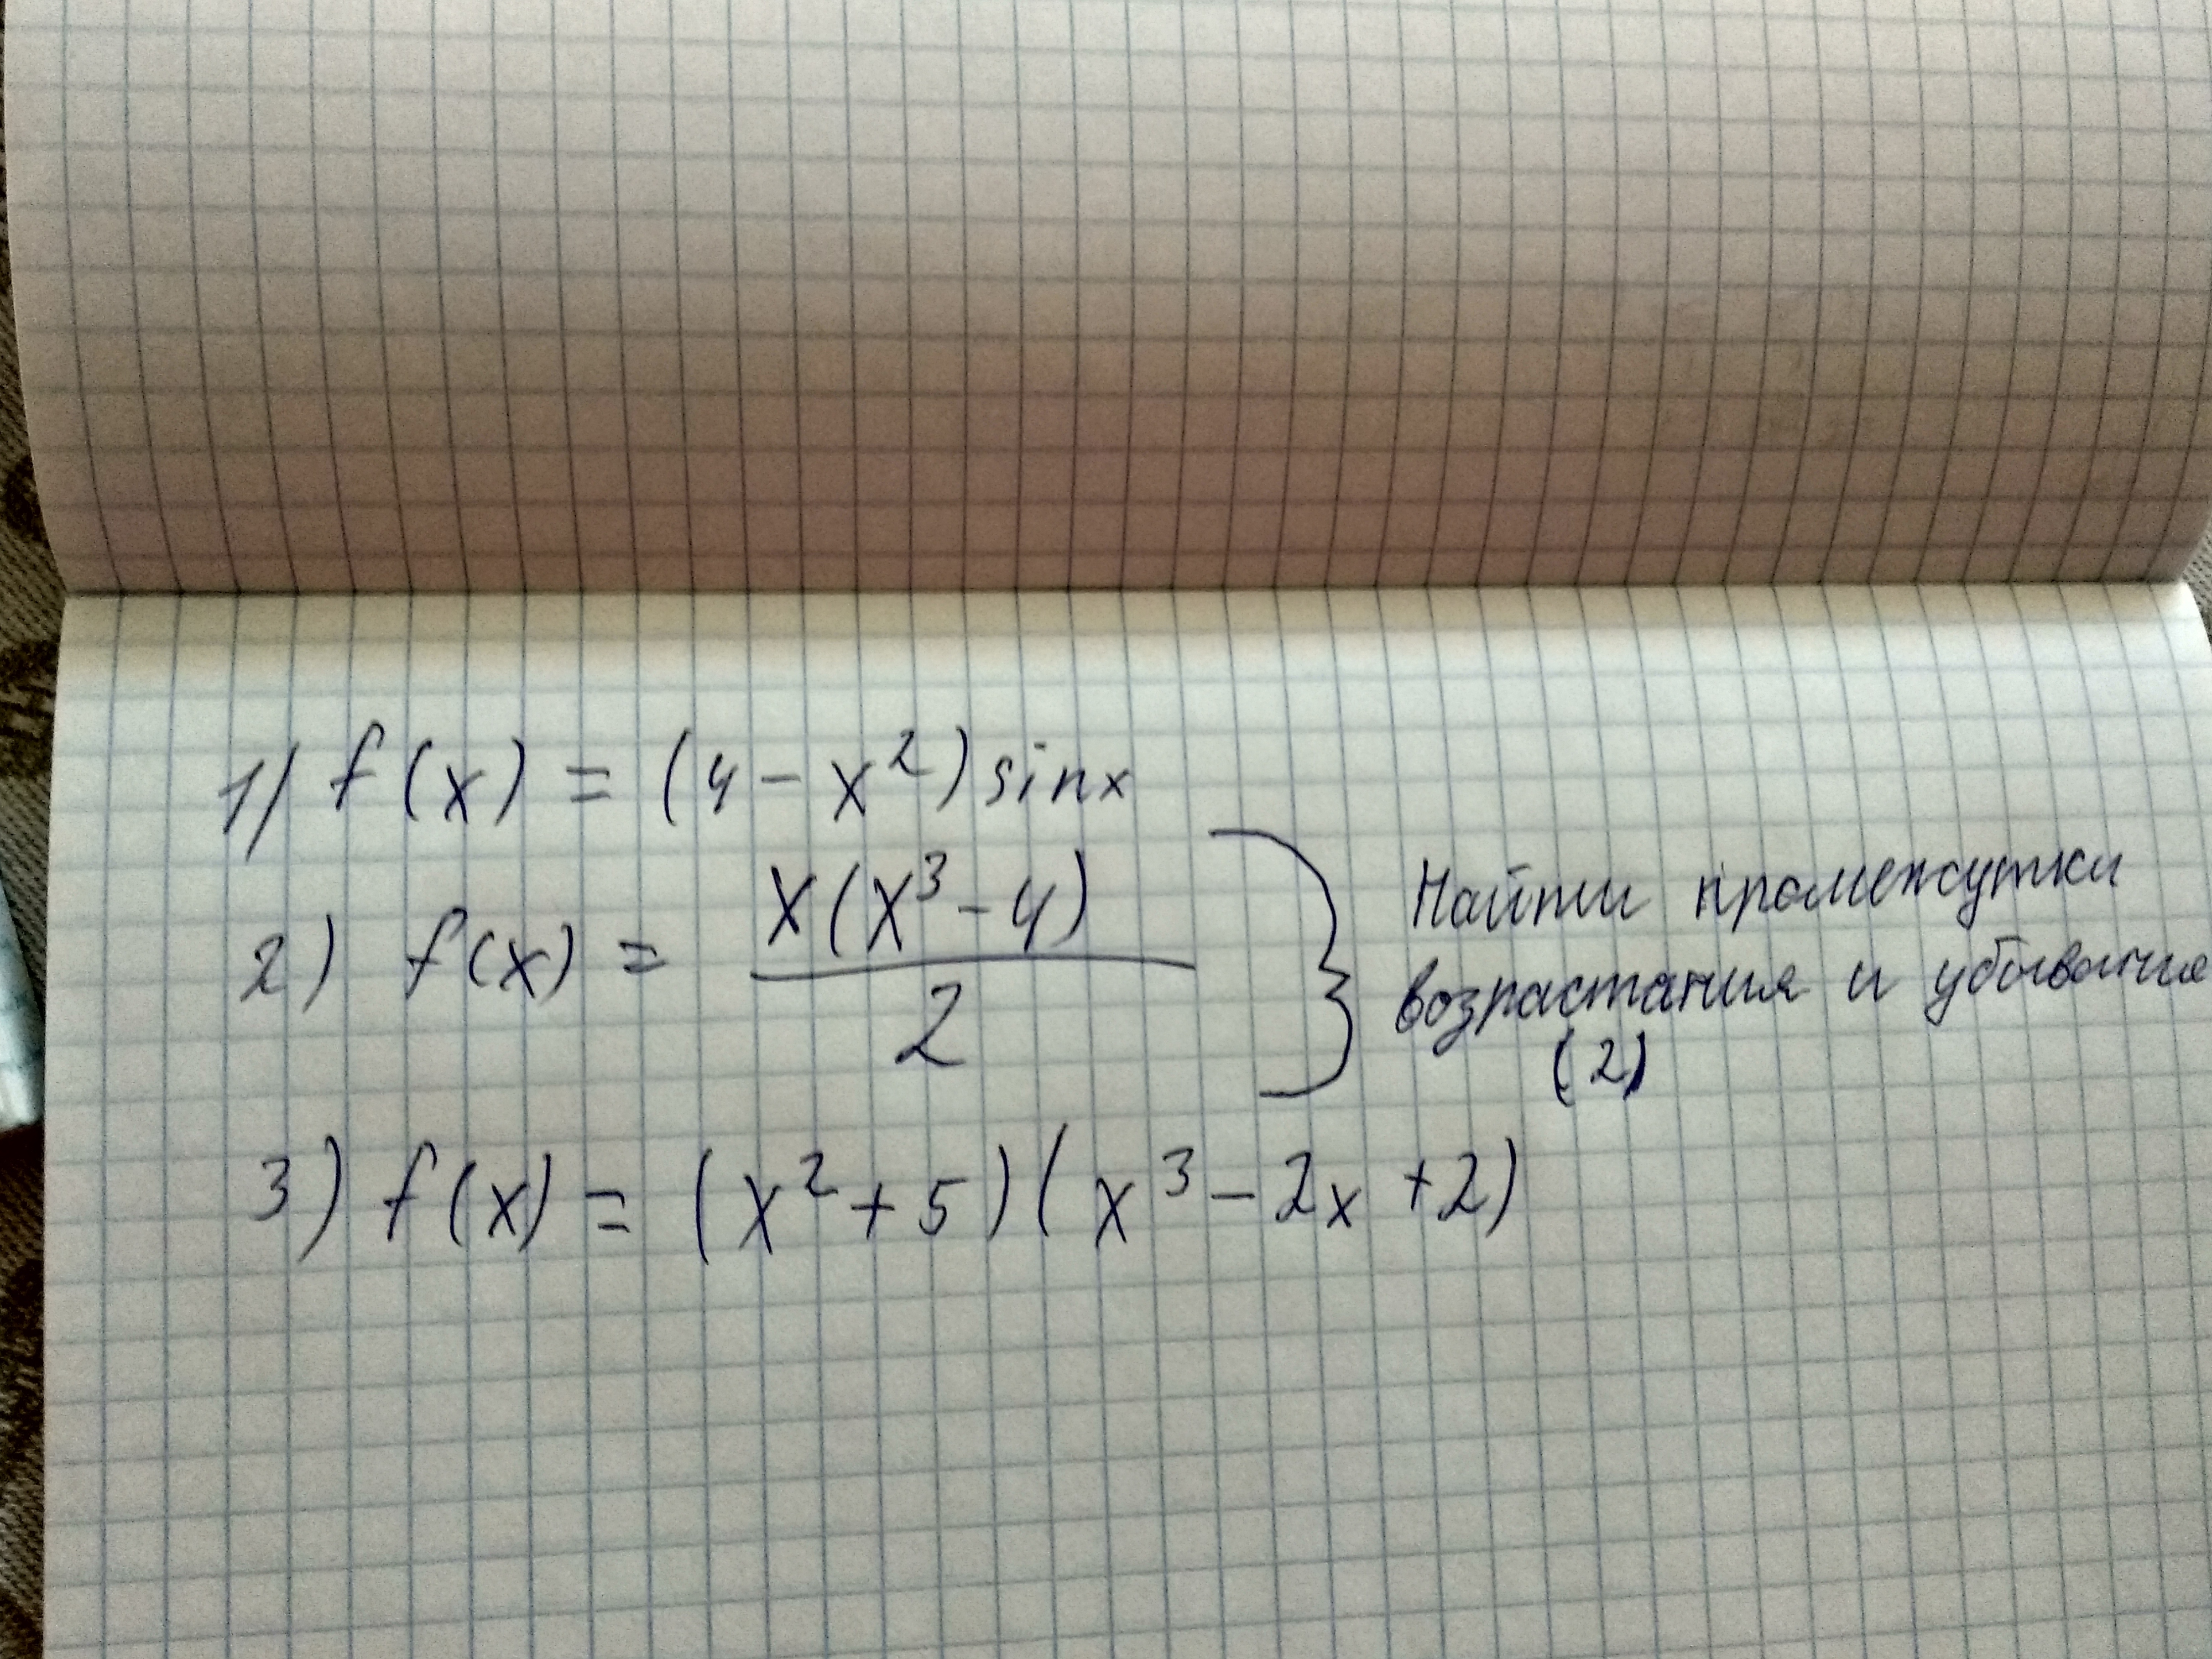 1) f(x) = (4 - x²) sinx
2) f(x) = x(x³-4) / 2
Найти промежутки
возрастания и убывания
(2)
3) f(x) = (x²+5)(x³-2x+2)